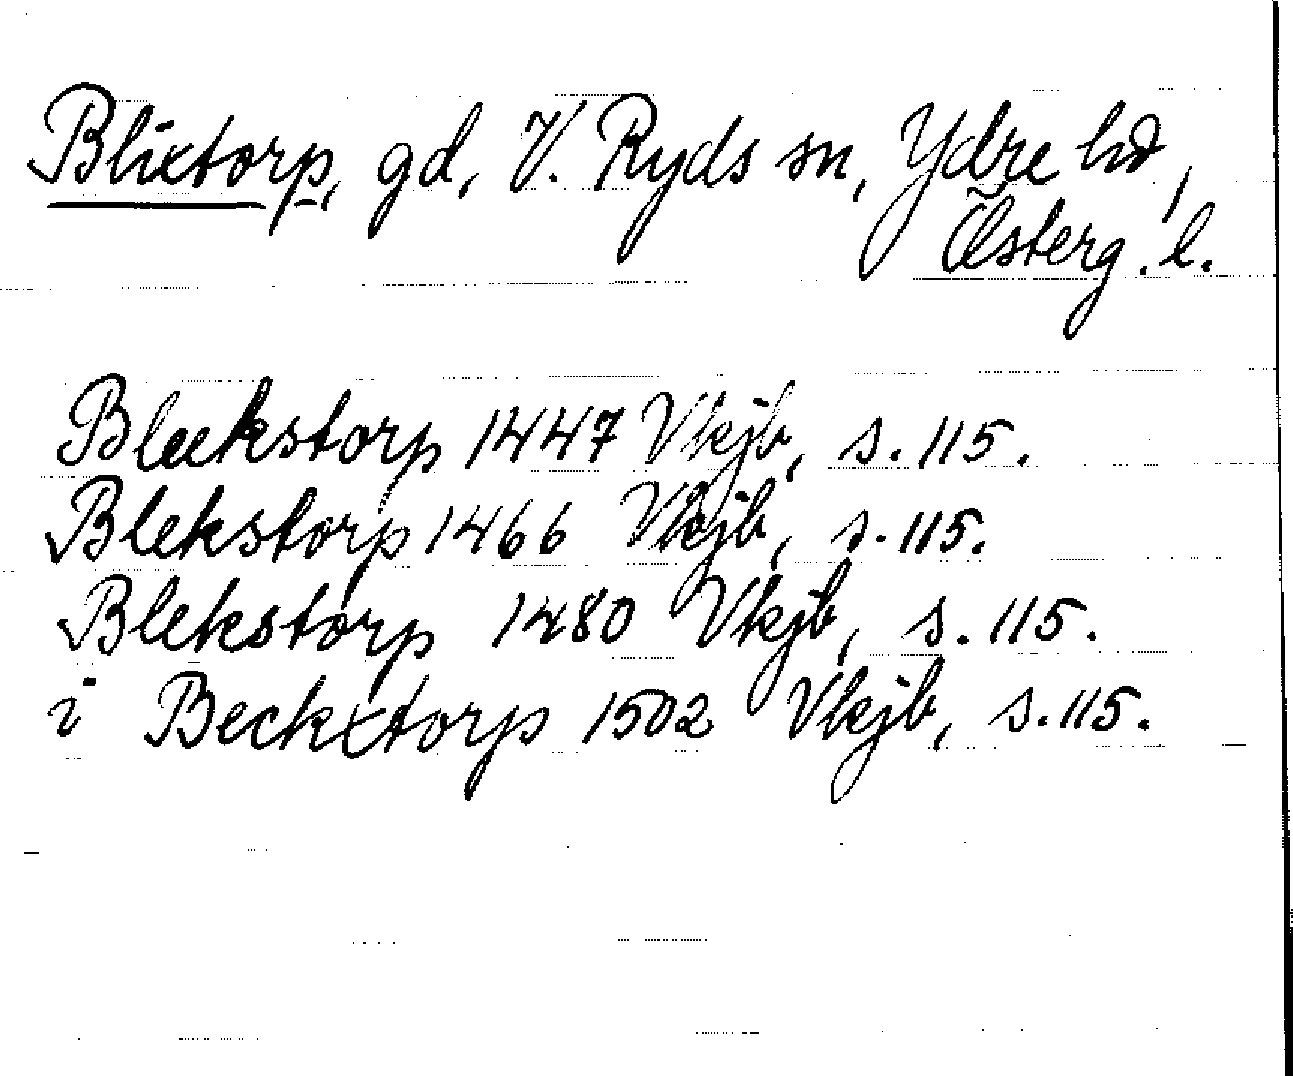 Blixtorp, gd, V. Ryds sn, Ydre hd,
Österg. l.
Blækstorp 1447 Vkjb, s. 115.
Blekstorp 1466 Vkjb, s. 115.
Blekstorp 1480 Vkjb, s. 115.
i Beckxtorp 1502 Vkjb, s. 115.